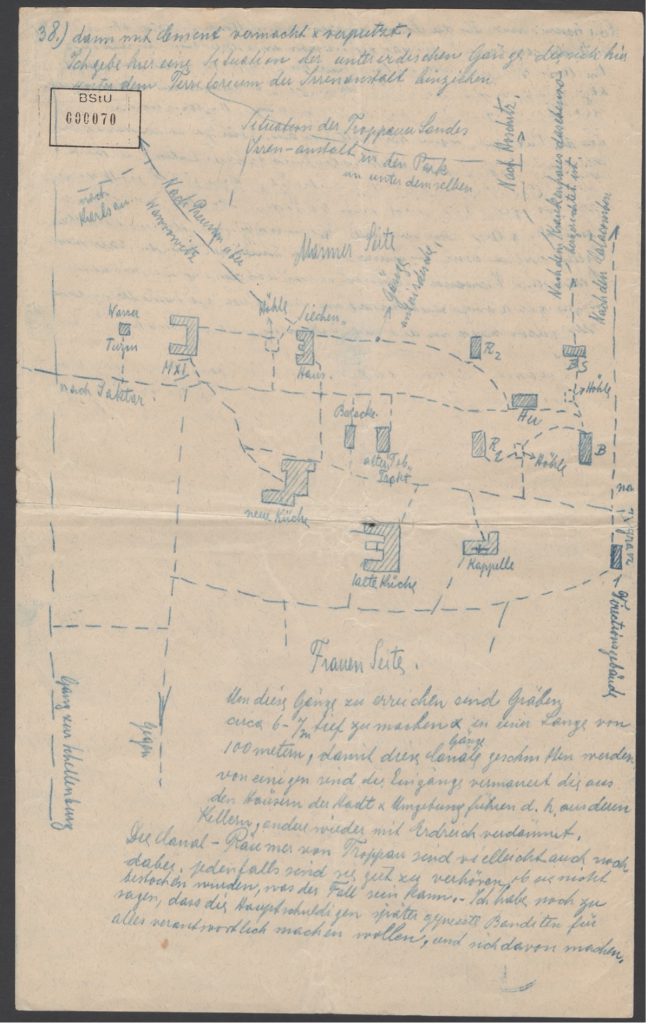 38.) dann mit Cement vermacht & verputzt.
Ich gebe hier eine Situation der unterirdischen Gänge die sich hier
unter dem Territorium der Irrenanstalt hinziehen
BStU
000070
Situation der Troppauer Landes
Irren-anstalt in den Park
an unter demselben
nach
Nach
Nach
Männer Seite
Gänge
unterirdische
Nach den Katakomben
Wasser
Turm
M XI
Höhle
Siechen-
Haus.
R2
Höhle
nach Jaktar
Baracke
alter Tob-
Trakt
R1
Höhle
B
neue Küche
alte Küche
1 Kappelle
Frauen Seite.
Gang zur Schellenburg
Um diese Gänge zu erreichen sind Gräben
circa 6-7m tief zu machen & in einer Länge von
100 metern, damit diese Canäle Gänge geschnitten werden
von einigen sind die Eingänge vermauert die aus
den Häusern der Stadt & Umgebung führen d. h. aus deren
Kellern, andere wieder mit Erdreich verdämmt.
Die Canal-Räumer von Troppau sind vielleicht auch noch
dabei, jedenfalls sind sie gut zu verhören, ob sie nicht
bestochen wurden, was der Fall sein kann. - Ich habe noch zu
sagen, dass die Hauptschuldigen später Banditen für
alles verantwortlich machen wollen, und sich davon machen.